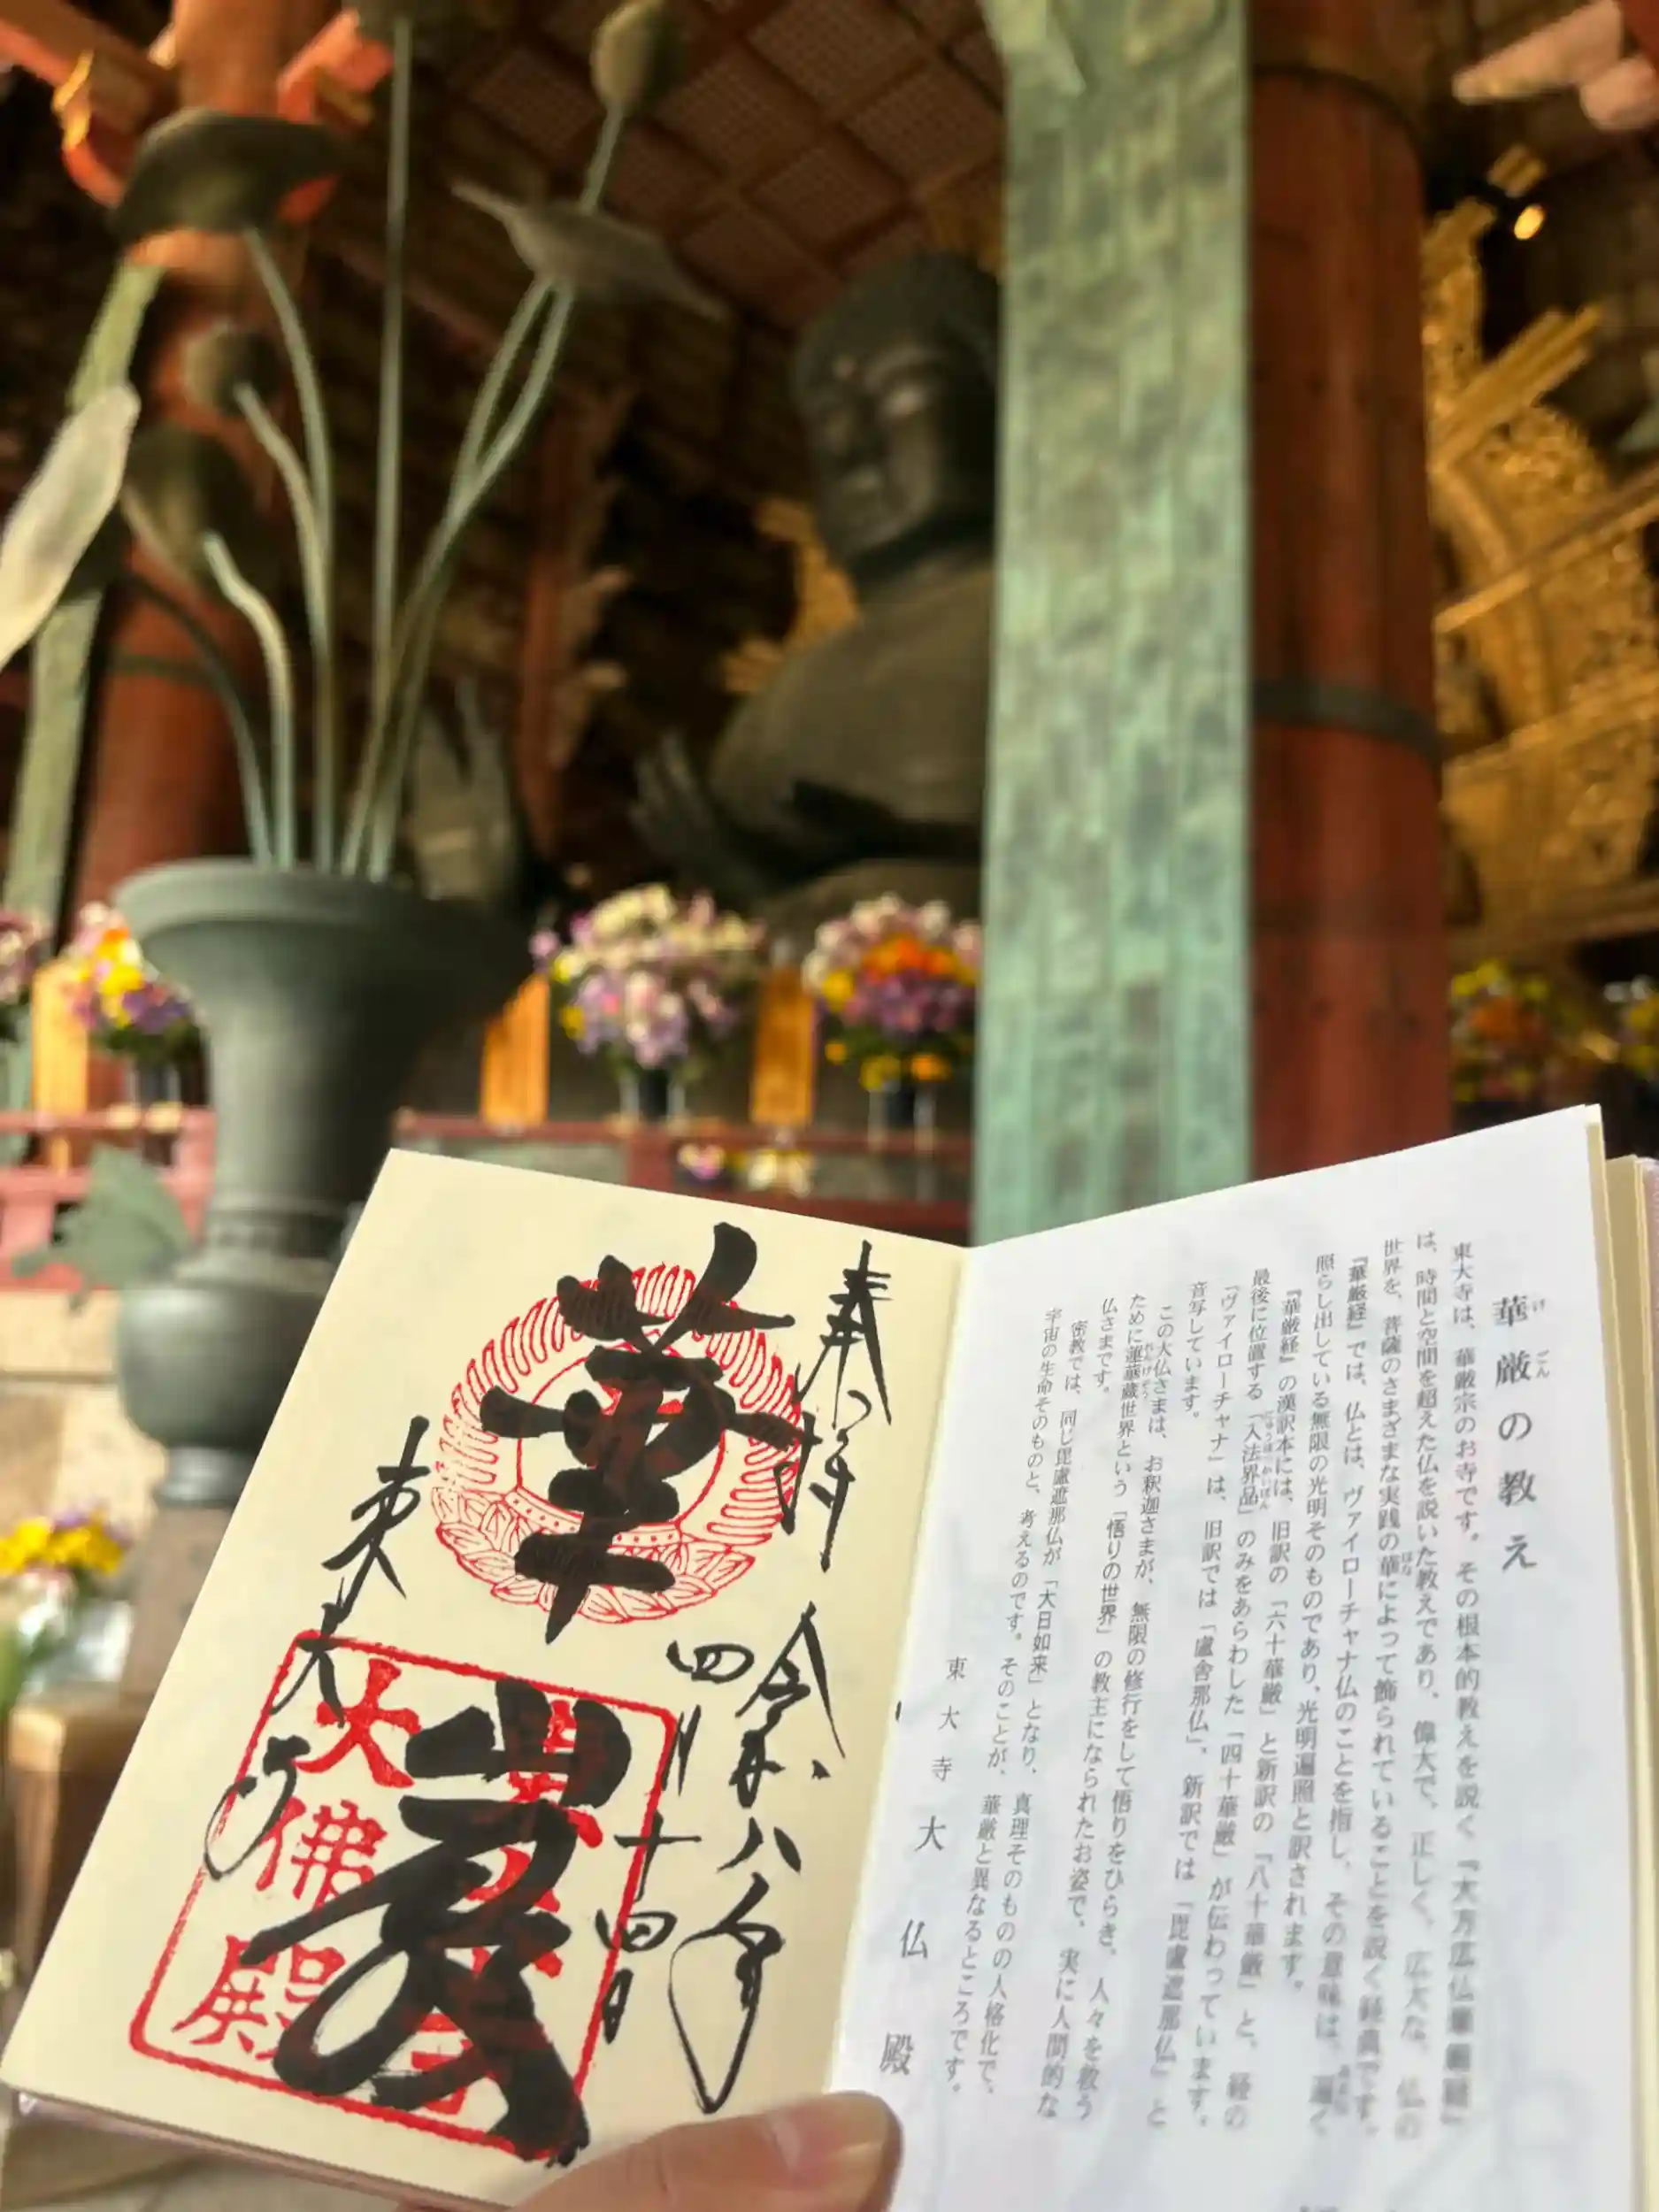 華厳の教え
東大寺は、華厳宗のお寺です。その根本的教えを説く『大方広仏華厳経』
は、時間と空間を超えた仏を説いた教えであり、偉大で、正しく、広大な、仏の
世界を、菩薩のさまざまな実践の華によって飾られていることを説く経典です。
『華厳経』では、仏とは、ヴァイローチャナ仏のことを指し、その意味は、遍く
照らし出している無限の光明そのものであり、光明遍照と訳されます。
『華厳経』の漢訳本には、旧訳の「六十華厳」と新訳の「八十華厳」と、経の
最後に位置する「入法界品」のみをあらわした「四十華厳」が伝わっています。
「ヴァイローチャナ」は、旧訳では「盧舎那仏」、新訳では「毘盧遮那仏」と
音写しています。
この大仏さまは、お釈迦さまが、無限の修行をして悟りをひらき、人々を救う
ために蓮華蔵世界という「悟りの世界」の教主になられたお姿で、実に人間的な
仏さまです。
密教では、同じ毘盧遮那仏が「大日如来」となり、真理そのものの人格化で、
宇宙の生命そのものと、考えるのです。そのことが、華厳と異なるところです。
東大寺大仏殿
奉拝
令和八年
四月十四日
華厳
東大寺
大佛殿